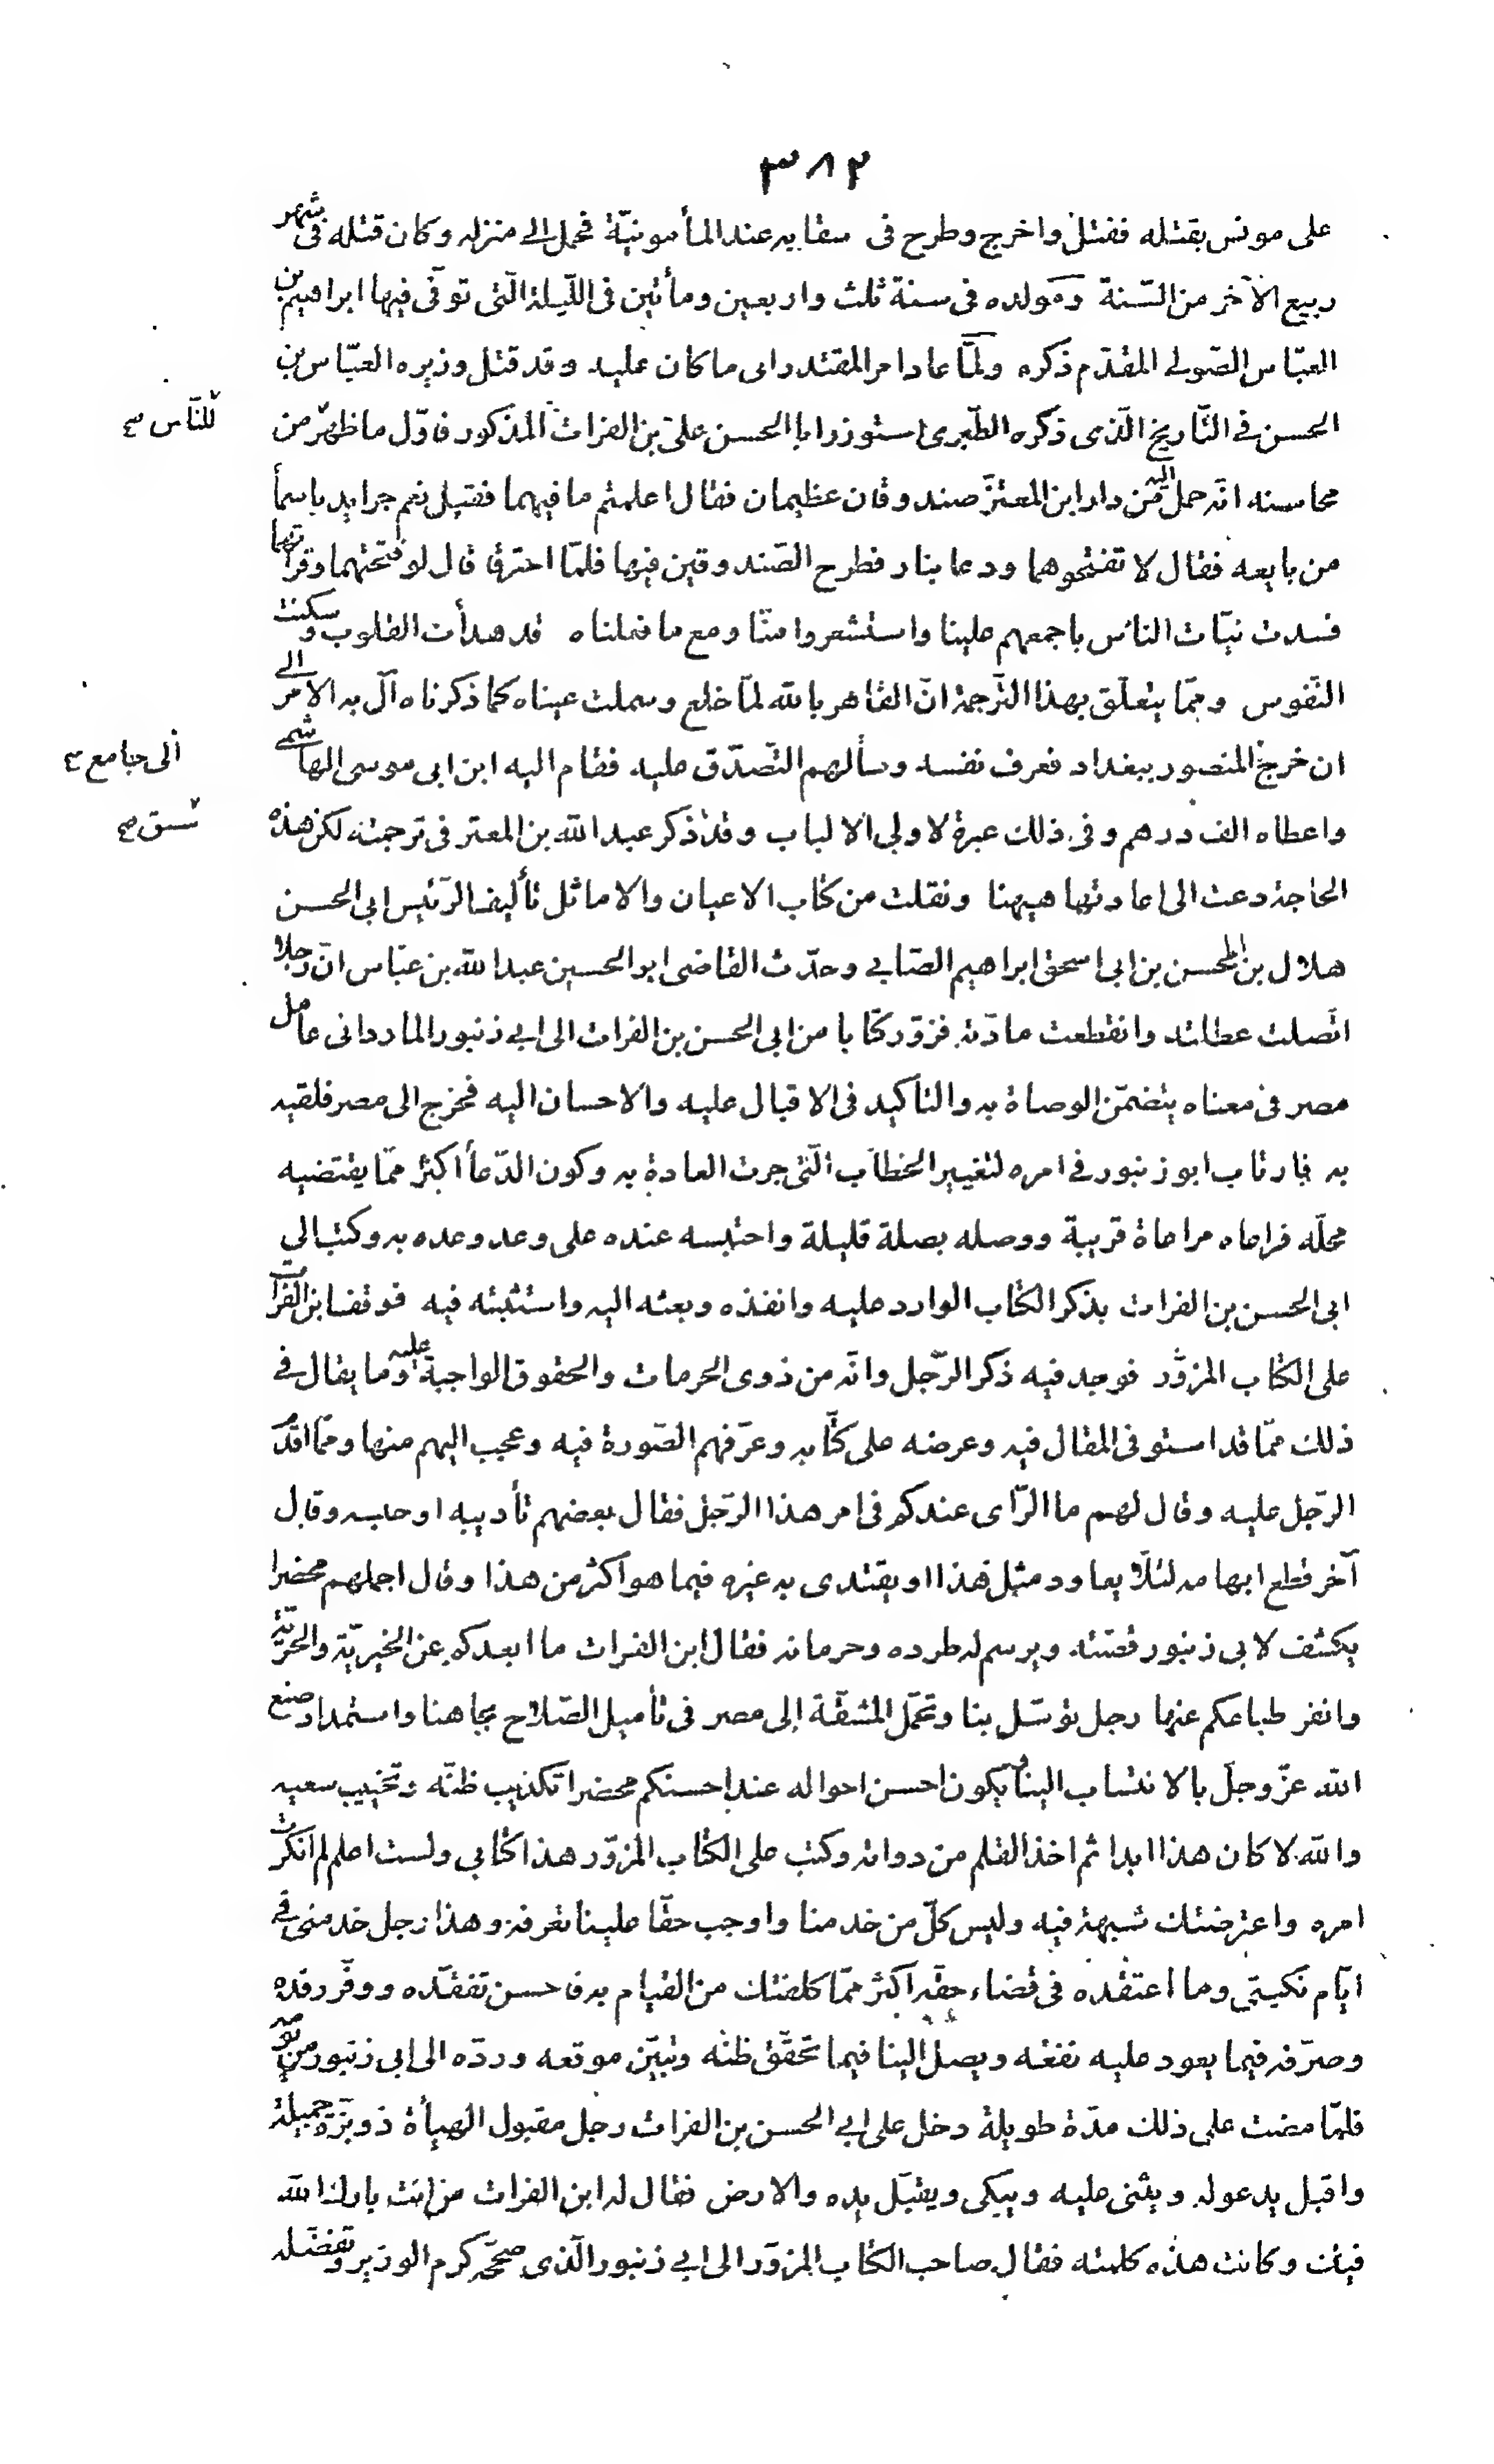 ٣٨٢
على مونس بقتله فقتل واخرج وطرح فى سقايه عند المأمونيّة فحمل الى منزله وكان قتله فى شهر
ربيع الآخر من السّنة ومولده فى سنة ثلث واربعين ومأتين فى اللّيلة الّتى توفّى فيها ابراهيم بن
العبّاس الصّولے المقدّم ذكره ولمّا عاد امر المقتدر الى ما كان عليه وقد قتل وزيره العبّاس بن
الحسن فے التّاريخ الّذى ذكره الطّبرى استوزر ابا الحسن علىّ بن الفرات المذكور فاوّل ما ظهر من
للنّاس صح
محاسنه انّه حمل اليه من دار ابن المعتزّ صندوقان عظيمان فقال اعلمتم ما فيهما فقيل نعم جرايد باسمأ
من بايعه فقال لا تفتحوهما ودعا بنار فطرح الصّندوقين فيها فلمّا احترقا قال لو فتحتهما وقرأتهما
فسدت نيّات الناس باجمعهم علينا واستشعروا منّا ومع ما فعلناه قد هدأت القلوب وسكنت
النّفوس وممّا يتعلّق بهذا التّرجمة انّ القاهر بالله لمّا خلع وسملت عيناه كما ذكرناه آل به الامر الے
ان خرج المنصور ببغداد فعرف نفسه وسألهم التّصدّق عليه فقام اليه ابن ابى موسى الهاشمے
الى جامع صح
واعطاه الف درهم وفى ذلك عبرة لاولى الالباب وقد ذكر عبد الله بن المعتز فى ترجمته لكن هذه
سبق صح
الحاجة دعت الى اعادتها هيهنا ونقلت من كتاب الاعيان والاماثل تأليف الرّئيس ابى الحسن
هلال بن المحسن بن ابى اسحق ابراهيم الصّابے وحدّث القاضى ابو الحسين عبد الله بن عبّاس انّ رجلا
اتّصلت عطلته وانقطعت مادّته فزوّر كتابا من ابى الحسن بن الفرات الى ابے زنبور الماردانى عامل
مصر فى معناه يتضمّن الوصاة به والتاكيد فى الاقبال عليه والاحسان اليه فخرج الى مصر فلقيه
به فارتاب ابو زنبور فے امره لتغيير الخطاب الّتى جرت العادة به وكون الدّعأ اكثر ممّا يقتضيه
محلّه فراعاه مراعاة قريبة ووصله بصلة قليلة واحتبسه عنده على وعد وعده به وكتب الى
ابى الحسن بن الفرات يذكر الكتاب الوارد عليه وانفذه وبعثه اليه واستثبته فيه فوقف ابن الفرات
على الكتاب المزوّر فوجد فيه ذكر الرّجل وانّه من ذوى الحرمات والحقوق الواجبة عليه وما يقال فے
ذلك ممّا قد استوفى المقال فيه وعرضه على كتّابه وعرّفهم الصّورة فيه وعجب اليهم منها وممّا اقدم
الرّجل عليه وقال لهم ما الرّاى عندكم فى امر هذا الرّجل فقال بعضهم تأديبه او حبسه وقال
آخر قطع ابهامه لئلّا يعاود مثل هذا او يقتدى به غيره فيما هو اكثر من هذا وقال اجملهم محضرا
يكشف لابى زنبور قصّته ويرسم له طرده وحرمانه فقال ابن الفرات ما ابعدكم عن الخيريّة والحرّيّة
وانفر طباعكم عنها رجل توسّل بنا وتحمّل المشقّة الى مصر فى تأميل الصّلاح بجاهنا واستمداد صنع
الله عزّ وجلّ بالانتساب الينا ويكون احسن احواله عند احسنكم محضرا تكذيب ظنّه وتخييب سعيه
والله لا كان هذا ابدا ثم اخذ القلم من دواته وكتب على الكتاب المزوّر هذا كتابى ولست اعلم لم انكرت
امره واعترضتك شبهة فيه وليس كلّ من خدمنا واوجب حقّا علينا تعرفه وهذا رجل خدمنى فے
ايّام نكبتى وما اعتقده فى قضاء حقّه اكثر ممّا كلفتك من القيام به فاحسن تفقّده ووفّر رفده
وصرّفه فيما يعود عليه نفعه ويصل الينا فيما تحقّق ظنّه وتبيّن موقعه وردّه الى ابى زنبور من يومه
فلمّا مضت على ذلك مدّة طويلة دخل على ابے الحسن بن الفرات رجل مقبول الهيأة ذو بزّة جميلة
واقبل يدعو له ويثنى عليه ويبكى ويقبّل يده والارض فقال له ابن الفرات من انت بارك الله
فيك وكانت هذه كلمته فقال صاحب الكتاب المزوّر الى ابے زنبور الّذى صحّحه كرم الوزير وتفضّله